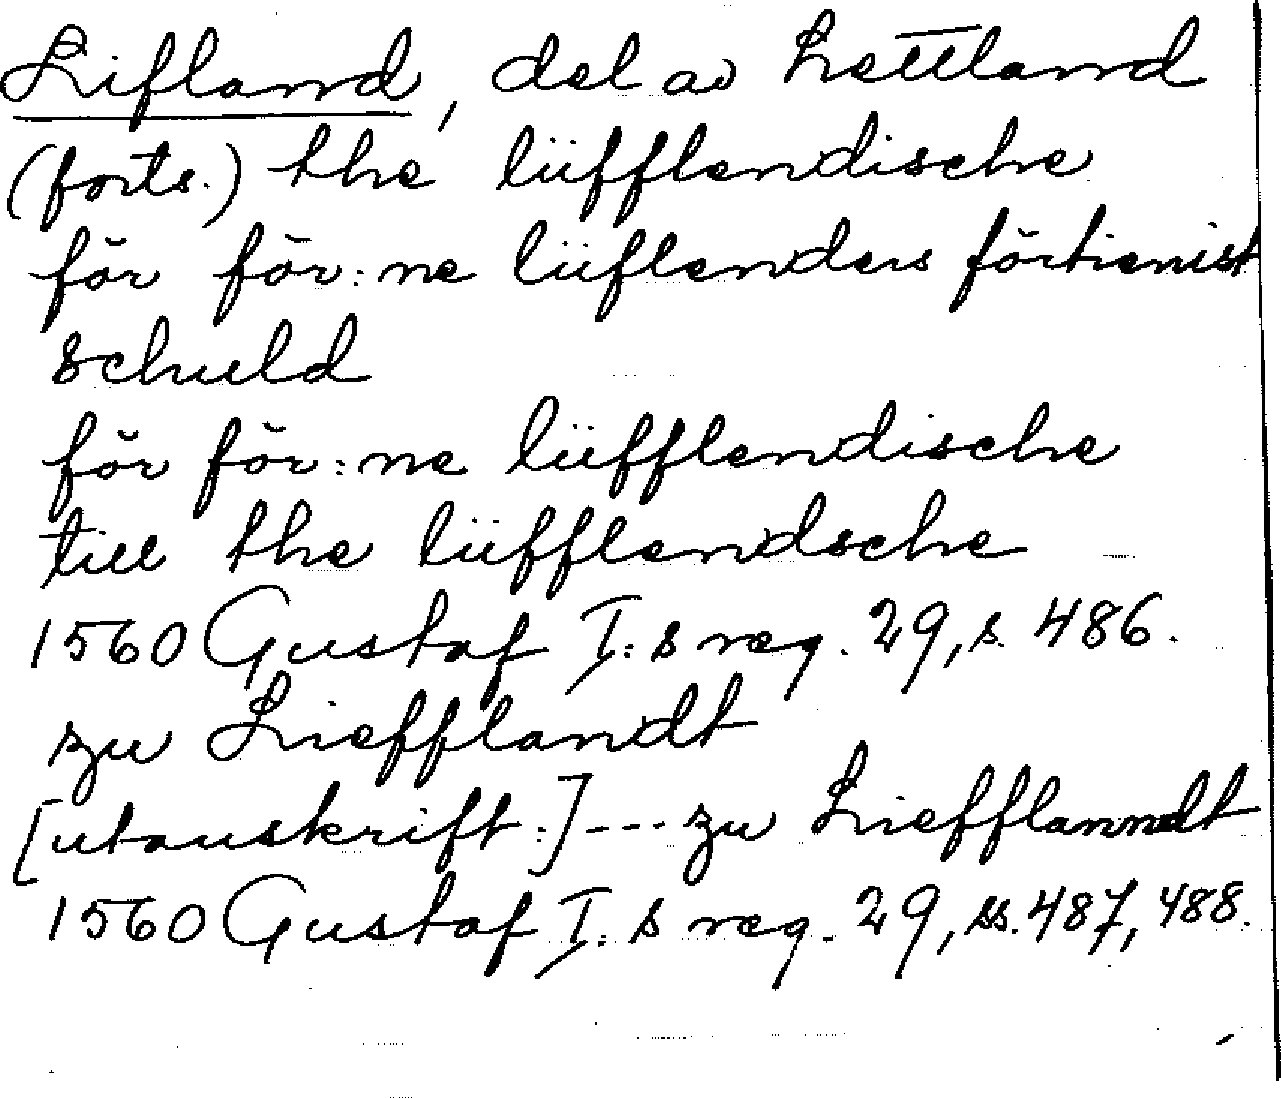 Lifland, del av Lettland
(forts.) the lüfflendische
för för:ne lüflenders förtienist
schuld
för för:ne lüfflendische
till the lüfflendsche
1560 Gustaf I:s reg. 29, s. 486.
zu Liefflandt
[utanskrift:] --- zu Liefflanndt
1560 Gustaf I:s reg. 29, ss. 487, 488.